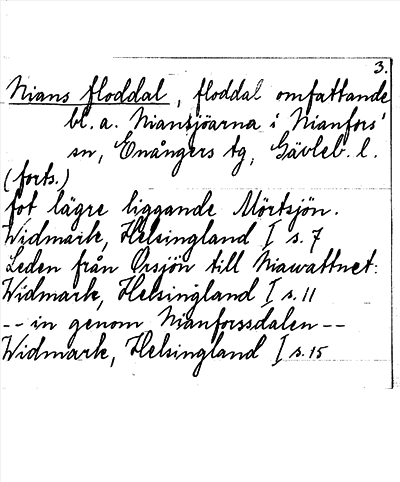 3.
Nians floddal, floddal omfattande
bl. a. Niansjöarna i Nianfors'
sn, Enångers tg, Gävleb. l.
(forts.)
fot lägre liggande Mörtsjön.
Widmark, Helsingland I s. 7
Leden från Örsjön till Niawattnet.
Widmark, Helsingland I s. 11
-- in genom Nianforssdalen --
Widmark, Helsingland I s. 15